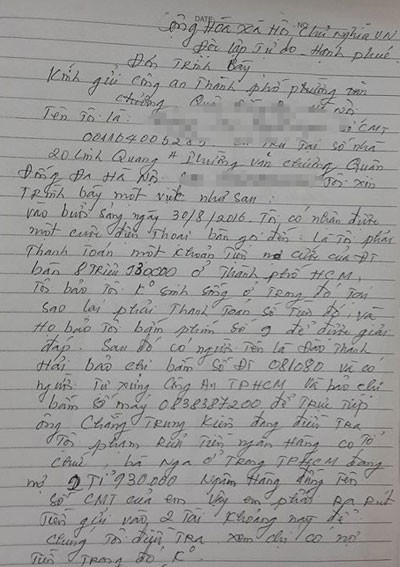 DATE NO
Cộng Hòa Xã Hội Chủ nghĩa VN
Độc lập Tự do _ Hạnh phúc
Đơn Trình Bày
Kính gửi công an Thành phố phường văn
chương Quận
Tên Tôi là : Số CMT
Trú Tại số nhà
20 Linh Quang A Phường văn chương Quận
Đống Đa Hà Nội Tôi xin
Trình bày một việc như sau :
vào buổi sáng ngày 30/8/2016. Tôi có nhận được
một cuộc điện Thoại bàn gọi đến là Tôi phải
Thanh Toán một khoản Tiền nợ cước của ĐT
bàn 8 Triệu 930000 ở Thành phố HCM,
Tôi bảo Tôi Kº sinh sống ở Trong đó Tại
sao lại phải Thanh Toán số Tiền đó, và
Họ bảo Tôi bấm phím số 9 để được giải
đáp. Sau đó có người Tên là Đào Thanh
Hải bảo chị bấm số ĐT 081080 và có
người Tự xưng Công An TPHCM và bảo chị
bấm số máy 0838387200 để Trực Tiếp
ông Chẳng Trung Kiên đang điều Tra
Tội phạm Rửa Tiền ngân Hàng có Tổ
Chức, bà Nga ở Trong TPHCM đang
nợ 9 Tỉ 930.000 Ngân Hàng đứng Tên
số CMT của em vậy em phải Ra Rút
Tiền gửi vào 2 Tài Khoảng này để
chúng Tôi điều Tra xem chị có nợ
Tiền Trong đó Kº.